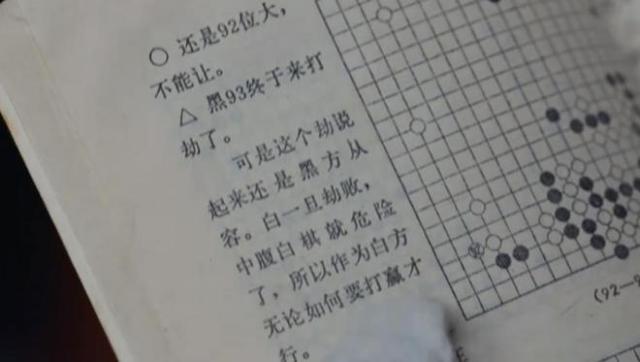 ○ 还是92位大，
不能让。
△ 黑93终于来打
劫了。
可是这个劫说
起来还是黑方从
容。白一旦劫败，
中腹白棋就危险
了，所以作为白方
无论如何要打赢才
行。
(92—9